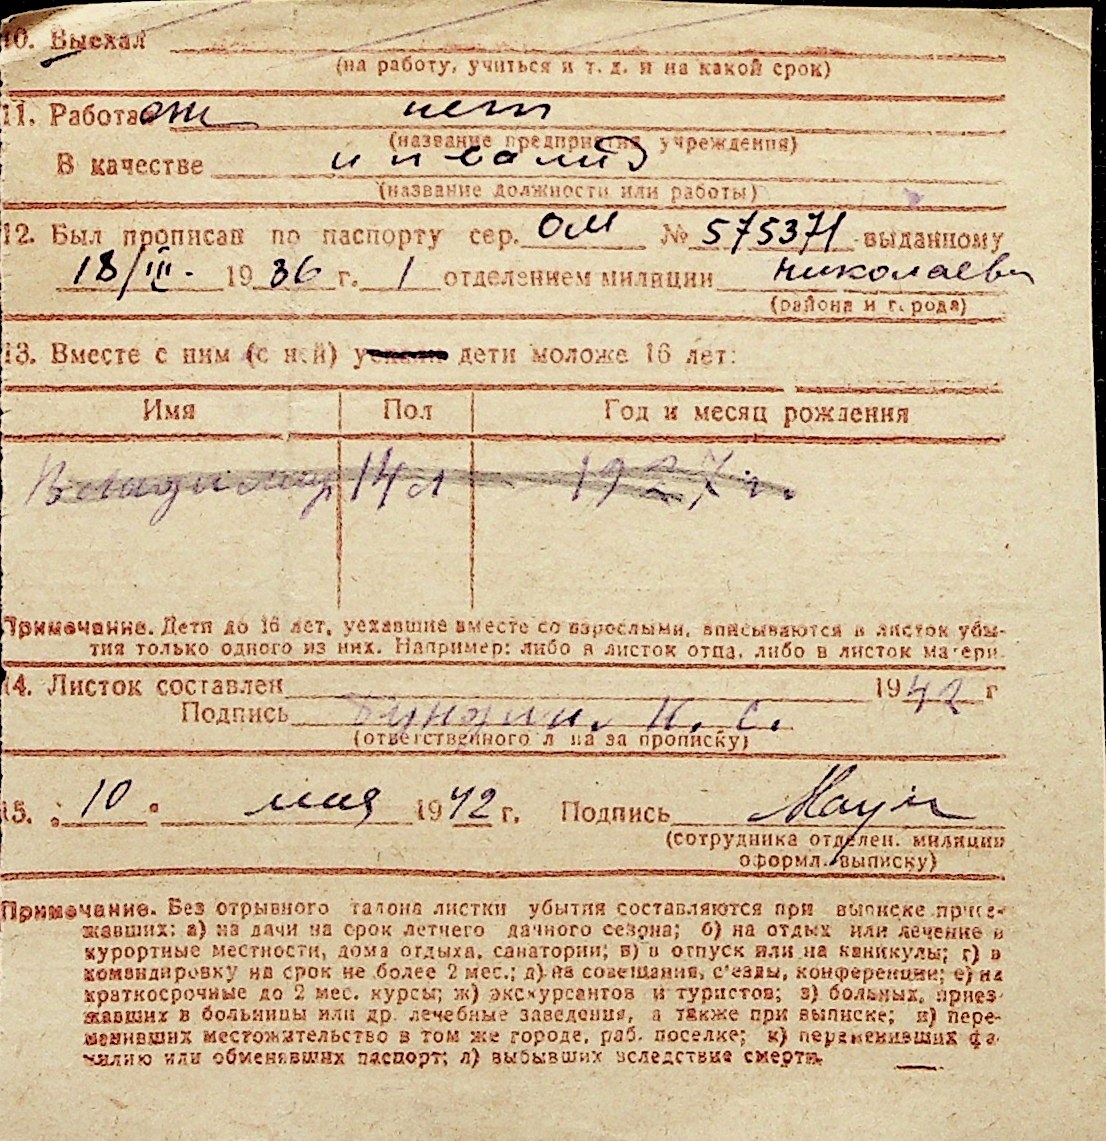 10. Выехал
(на работу, учиться и т. д. и на какой срок)
11. Работает нет
(название предприятия, учреждения)
В качестве инвалид
(название должности или работы)
12. Был прописан по паспорту сер. ОМ № 575371 выданному
18/III. 1936 г. 1 отделением милиции Николаева
(района и города)
13. Вместе с ним (с ней) дети моложе 16 лет:
Имя Пол Год и месяц рождения
Владимир 14 л 1927 г.
Примечание. Дети до 16 лет, уехавшие вместе со взрослыми, вписываются в листок убы-
тия только одного из них. Например: либо в листок отца, либо в листок матери.
14. Листок составлен 1942 г
Подпись К. С.
(ответственного лица за прописку)
15. 10 мая 1942 г. Подпись
(сотрудника отделен. милиции
оформл. выписку)
Примечание. Без отрывного талона листки убытия составляются при выписке приез-
жавших: а) на дачи на срок летчего дачного сезона; б) на отдых или лечение в
курортные местности, дома отдыха, санатории; в) в отпуск или на каникулы; г) в
командировку на срок не более 2 мес.; д) на совещания, с'езды, конференции; е) на
краткосрочные до 2 мес. курсы; ж) экскурсантов и туристов; з) больных, приез-
жавших в больницы или др. лечебные заведения, а также при выписке; и) пере-
менивших местожительство в том же городе, раб. поселке; к) переменивших фа-
милию или обменявших паспорт; л) выбывших вследствие смерти.